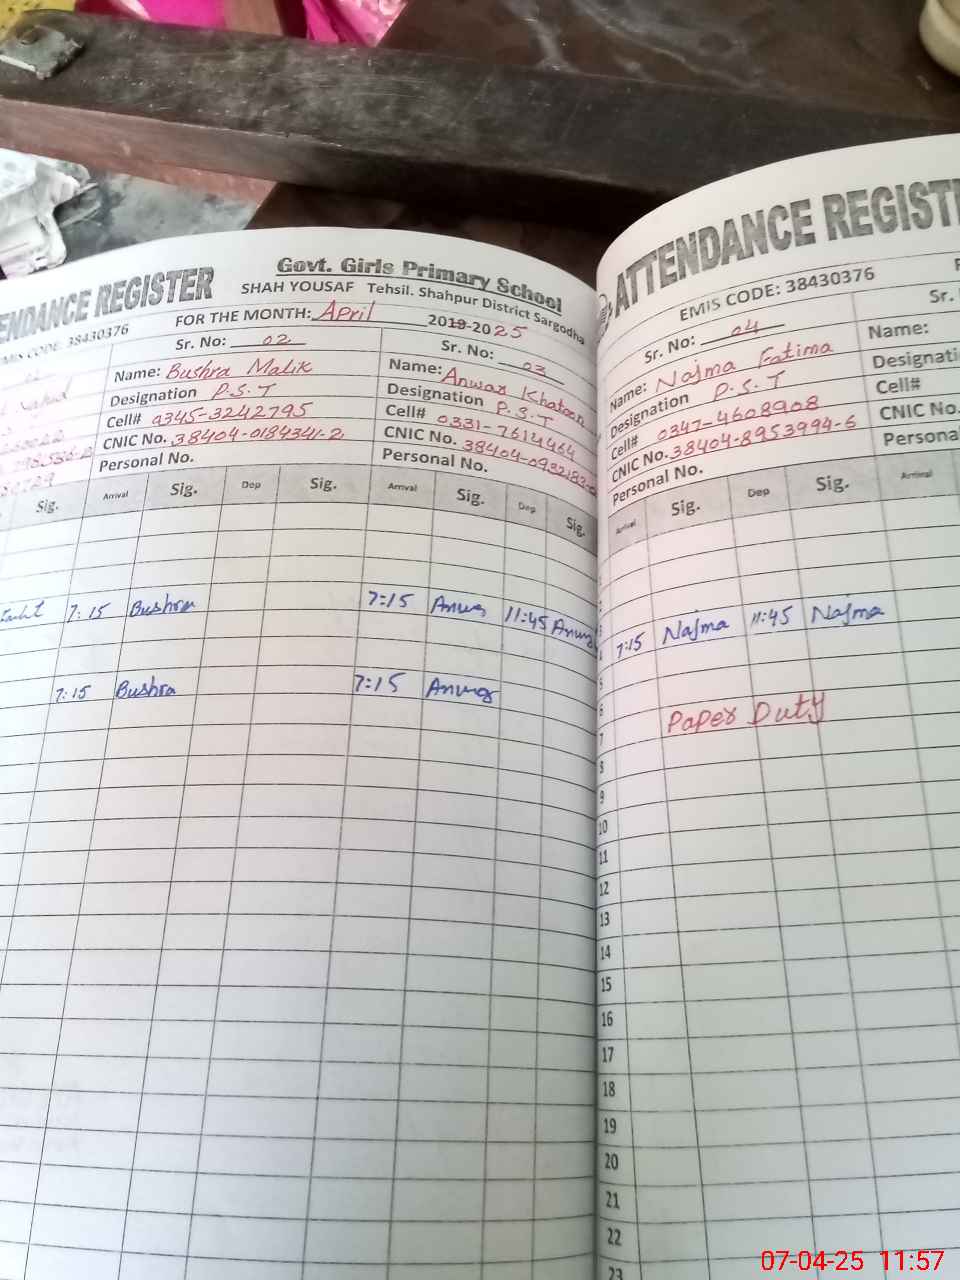 ENDANCE REGISTER
Govt. Girls Primary School
SHAH YOUSAF Tehsil. Shahpur District Sargodha
EMIS CODE: 38430376
FOR THE MONTH: April 2019-2025
Sr. No: 02
Name: Bushra Malik
Designation P.S.T
Cell# 0345-3242795
CNIC No. 38404-0184341-2
Personal No.
Sr. No: 03
Name: Anwar Khatoon
Designation P.S.T
Cell# 0331-7614464
CNIC No. 38404-0932182-
Personal No.
Sig. Arrival Sig. Dep Sig. Arrival Sig. Dep Sig.
7:15 Bushra 7:15 Anwar 11:45 Anwar
7:15 Bushra 7:15 Anwar
ATTENDANCE REGISTE
EMIS CODE: 38430376
Sr. No: 04
Name: Najma Fatima
Designation P.S.T
Cell# 0347-4608908
CNIC No. 38404-8953994-6
Personal No.
Sr.
Name:
Designati
Cell#
CNIC No.
Personal
Arrival Sig. Dep Sig. Arrival
3
4 7:15 Najma 11:45 Najma
5
6
7 Paper Duty
8
9
10
11
12
13
14
15
16
17
18
19
20
21
22
23
07-04-25 11:57